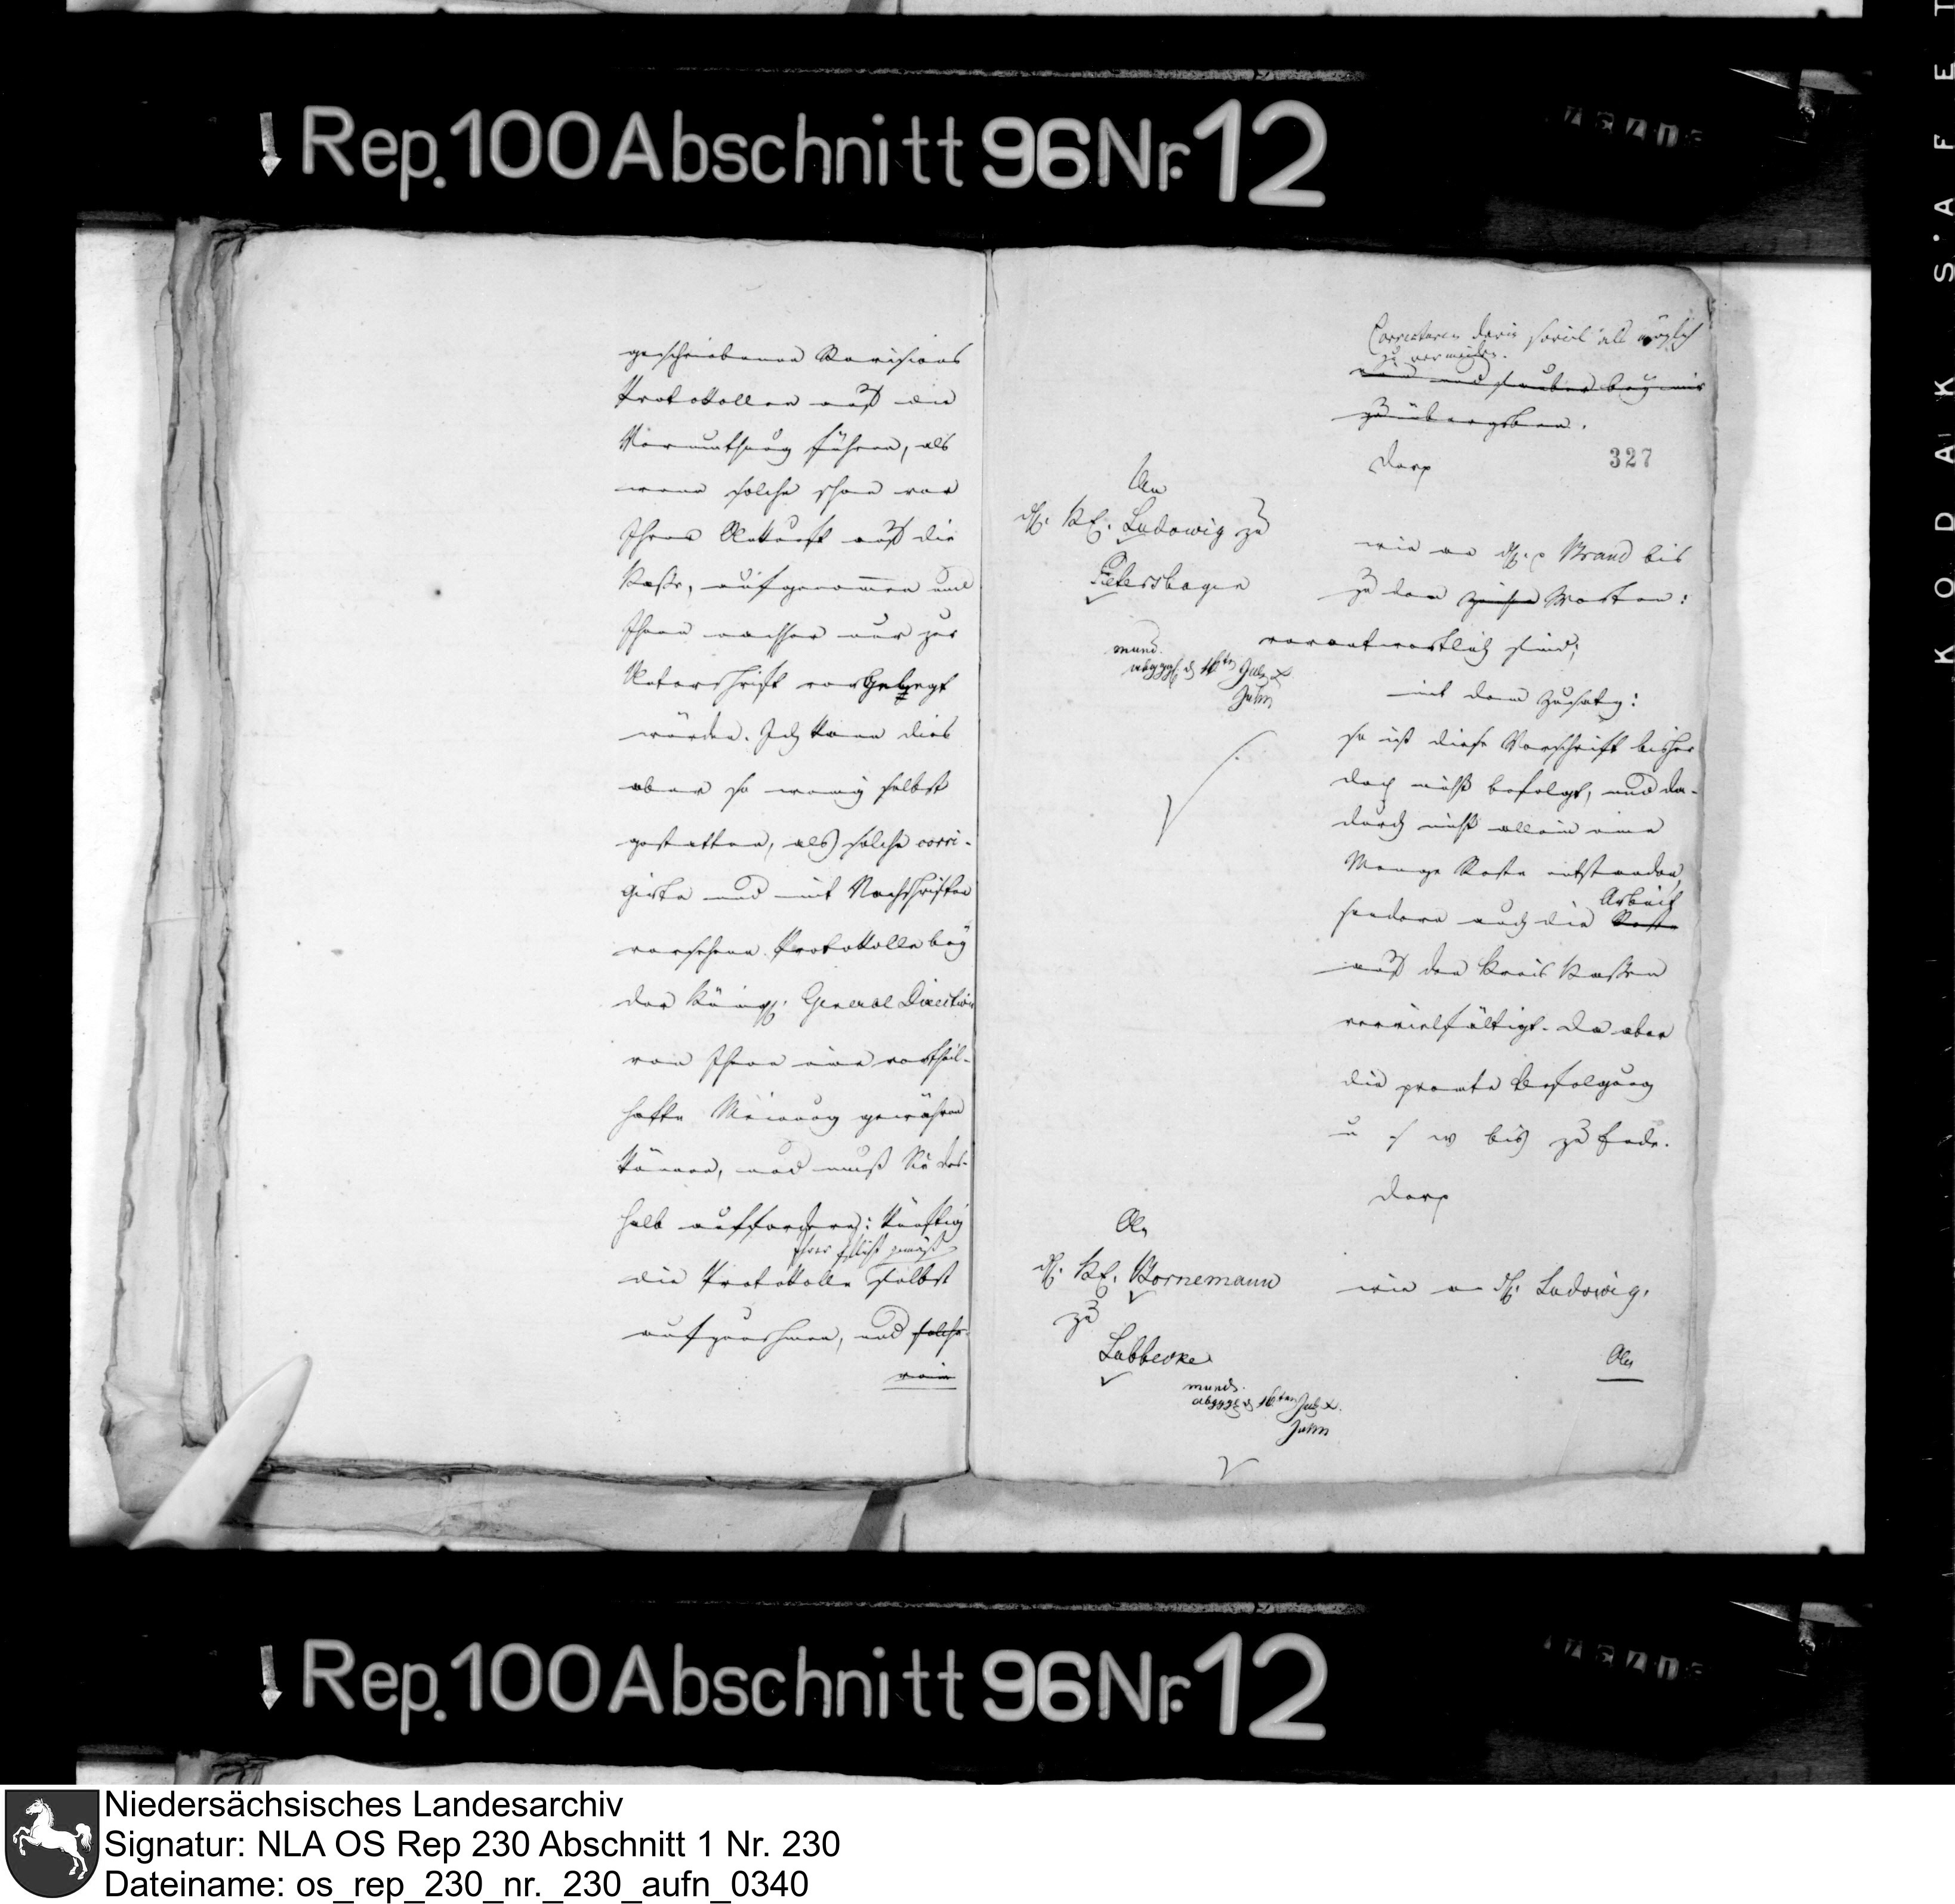 Rep. 100 Abschnitt 96 Nr. 12
geschriebenen Revisions
Protokollen auf die
Vermuthung führen, als
wenn solche schon vor
Ihrer Ankunft auf die
Kasse, aufgenommen und
Ihnen nachher nur zur
Unterschrift vorgelegt
würden. Ich kann dies
aber so wenig selbst
gestatten, als solche corri-
girte und mit Nachschriften
versehene Protokolle bey
der Königl. General Direction
von Ihnen eine vortheil-
hafte Meinung gewähren
können, und muß Sie des-
halb auffordern: künftig
Ihrer Pflicht gemäß
die Protokolle selbst
aufzunehmen, und solche
rein
Correcturen darin soviel als möglich
zu vermeiden.
rein und sauber bey mir
zu übergeben.
327
Dorp
An
H. KE. Ludowig zu
Petershagen
mund.
abggg. d 16ten July
Juhn
wie an H. Brand bis
zu den Worten:
verantwortlich sind;
mit dem Zusatz:
so ist diese Vorschrift bisher
doch nicht befolgt, und da-
durch nicht allein eine
Menge Reste entstanden,
Arbeit
sondern auch die Reste
auf den Kreis Kassen
vervielfältigt. Da aber
die promte Befolgung
u s w bis zu Ende.
Dorp
An
H. KE. Bornemann
zu
Lübbecke
wie an H. Ludowig.
An
mund.
abggg. d 16ten July
Juhn
Rep. 100 Abschnitt 96 Nr. 12
KODAK SAFET
Niedersächsisches Landesarchiv
Signatur: NLA OS Rep 230 Abschnitt 1 Nr. 230
Dateiname: os_rep_230_nr._230_aufn_0340